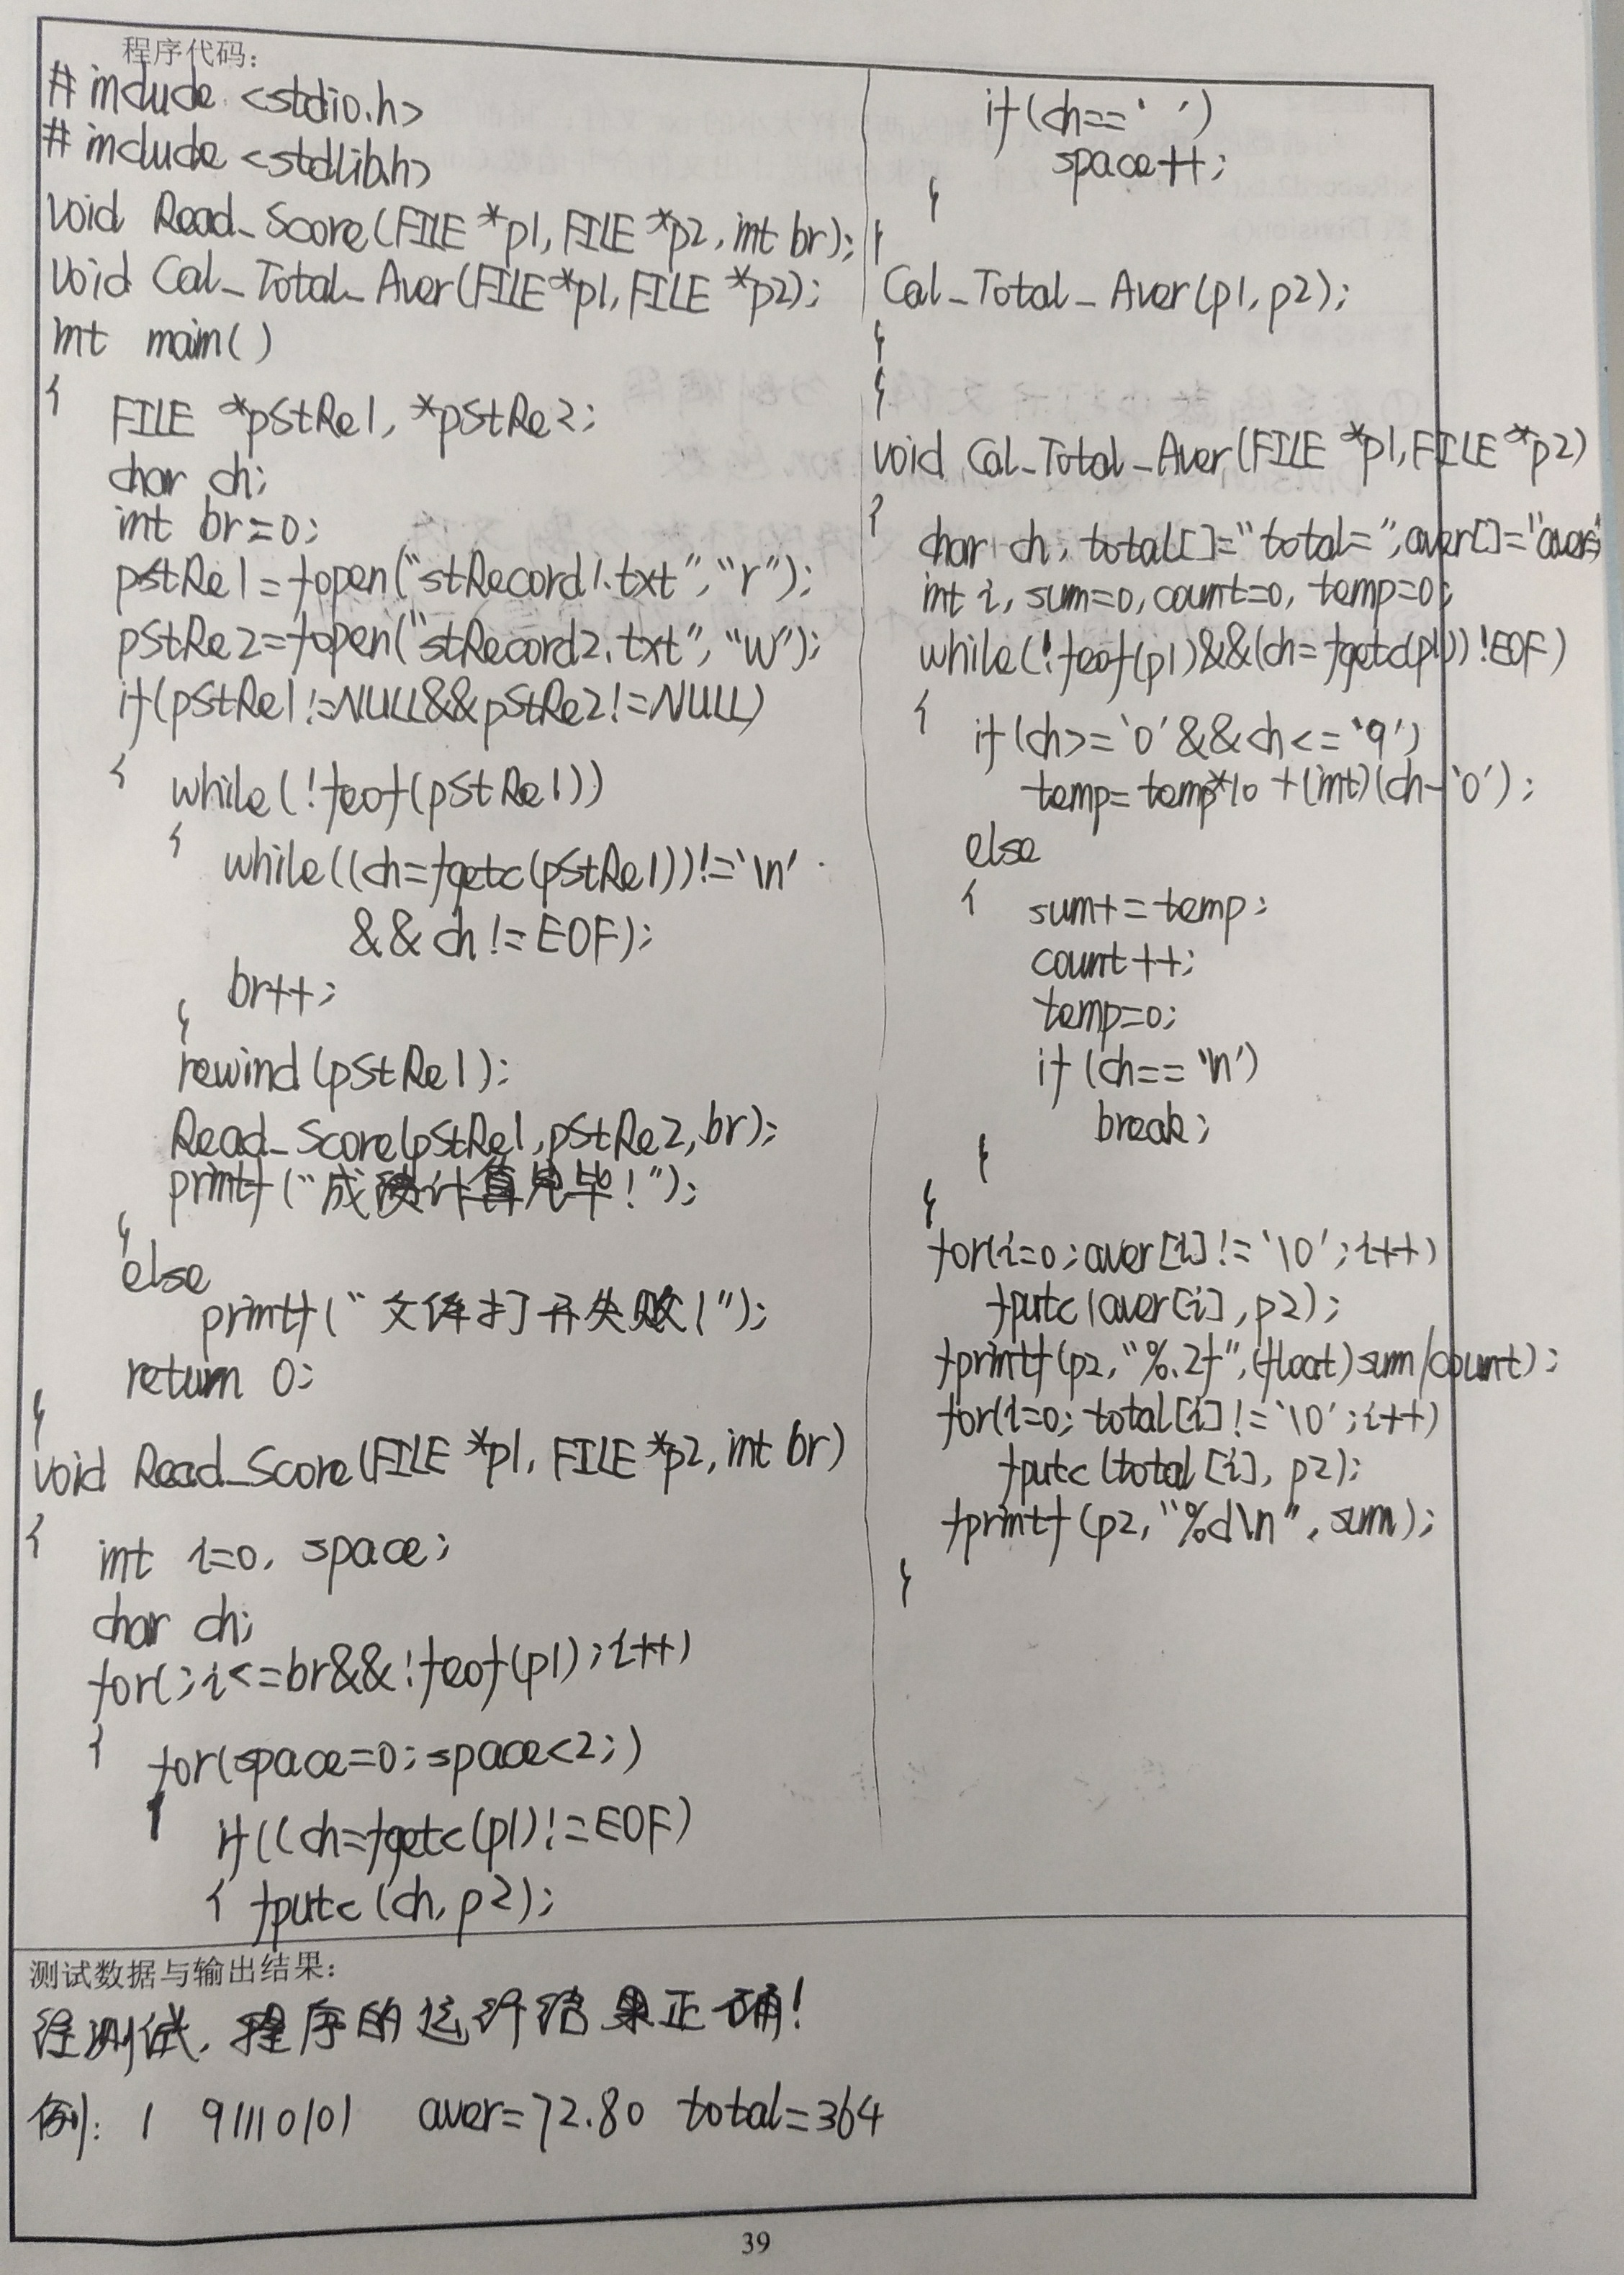 程序代码：
#include <stdio.h>
#include <stdlib.h>
void Read_Score(FILE *p1, FILE *p2, int br);
void Cal_Total_Aver(FILE *p1, FILE *p2);
int main()
{
FILE *pStRe1, *pStRe2;
char ch;
int br=0;
pStRe1=fopen("stRecord1.txt","r");
pStRe2=fopen("stRecord2.txt","w");
if(pStRe1!=NULL&&pStRe2!=NULL)
{ while(!feof(pStRe1))
{ while((ch=fgetc(pStRe1))!='\n'
&&ch!=EOF);
br++;
}
rewind(pStRe1);
Read_Score(pStRe1,pStRe2,br);
printf("成绩计算完毕!");
}
else
printf("文件打开失败!");
return 0;
}
void Read_Score(FILE *p1, FILE *p2, int br)
{
int i=0, space;
char ch;
for(;i<=br&&!feof(p1);i++)
{ for(space=0;space<2;)
{
if((ch=fgetc(p1)!=EOF)
{ fputc(ch,p2);
if(ch==' ')
space++;
}
}
Cal_Total_Aver(p1,p2);
}
}
void Cal_Total_Aver(FILE *p1,FILE *p2)
{
char ch, total[]="total=",aver[]="aver=
int i, sum=0,count=0, temp=0;
while(!feof(p1)&&(ch=fgetc(p1))!EOF)
{ if(ch>='0'&&ch<='9')
temp=temp*10+(int)(ch-'0');
else
{ sum+=temp;
count++;
temp=0;
if(ch=='\n')
break;
}
}
for(i=0;aver[i]!='\0';i++)
fputc(aver[i],p2);
fprintf(p2,"%.2f",(float)sum/count);
for(i=0;total[i]!='\0';i++)
fputc(total[i],p2);
fprintf(p2,"%d\n",sum);
}
测试数据与输出结果：
经测试，程序的运行结果正确!
例: 1 91110101 aver=72.80 total=364
39